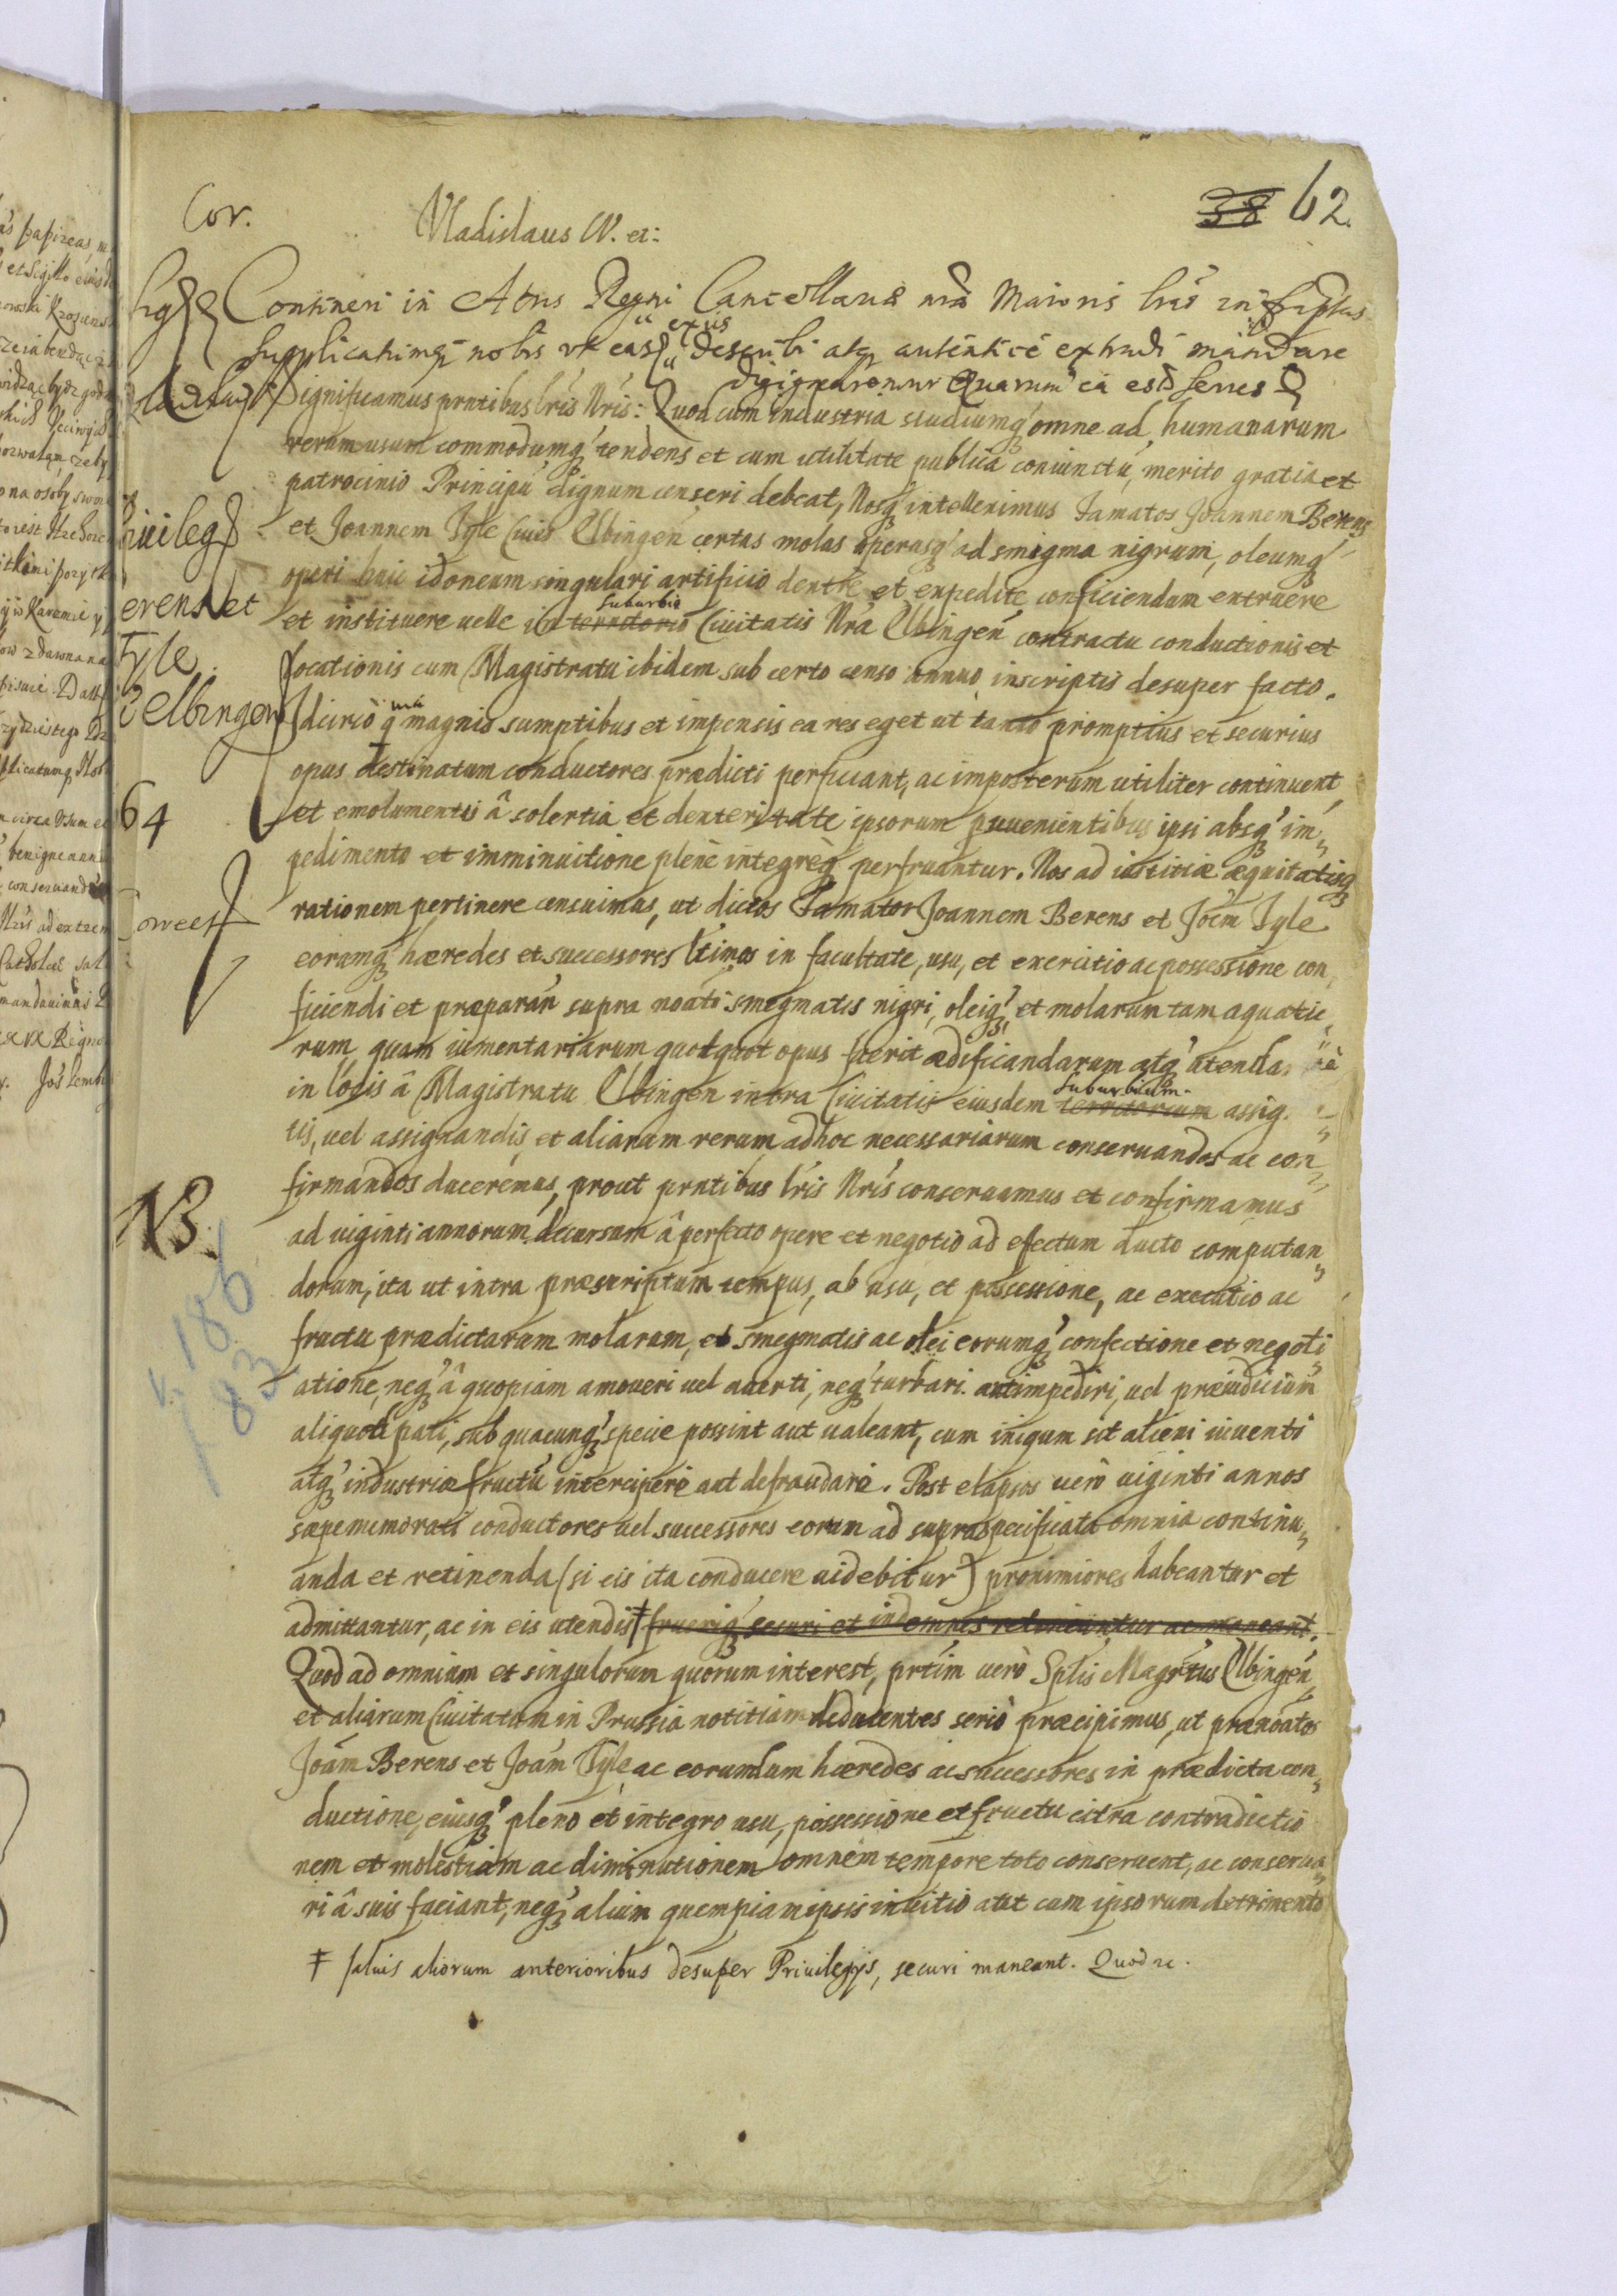 38 62.
Cor.
Vladislaus IV. etc:
Contineri in Actis Regni Cancellariæ nræ Maioris lras infrascriptas
supplicatumq nobis vt eas ex ijs describi atq autenticè extradi mandare
dignaremur Quarum ea est series
Significamus prntibus lris Nris: Quod cum industria studiumq omne ad humanarum
rerum usum commodumq tendens et cum utilitate publica coniunctú, merito gratia et
patrocinio Principú dignum censeri debeat, Nosq intellexímus Famatos Joannem Berens
et Joannem Tyle Ciues Elbingen certas molas operasq ad smigma nigrum, oleumq
operi huic idoneum singulari artificio dextrè et expedite conficiendum extruere
suburbio
et instituere uelle in territorio Ciuitatis Nrá Elbingen contractu conductionis et
locationis cum Magistratu ibidem sub certo censo annuo inscriptis desuper facto.
Idcircò qmá magnis sumptibus et impensis ea res eget ut tantò promptius et securius
opus destinatum conductores prædicti perficiant, ac imposterum utiliter continuent,
et emolumentis â solertia et dexteritate ipsorum prouenientibus ipsi absq im„
pedimento et imminuitione plenè integrèq perfruantur. Nos ad iustitiæ æquitatisq
rationem pertinere censuimus, ut dictos Famatos Joannem Berens et Joém Tyle
eorumq hæredes et successores ltimos in facultate, usu, et exercitio ac possessione con„
ficiendi et præparán supra noáti smegmatis nigri, oleiq, et molarum tam aquatic„
rum quam iumentariarum quotquot opus fuerit ædificandarum atq utenda
in locis â Magistratu Elbingen intra Ciuitatis eiusdem territorium suburbium assig.
tis, uel assignandis, et aliarum rerum adhoc necessariarum conseruandos ac con„
firmandos duceremus, prout prntibus lris Nris conseruamus et confirmamus
ad uiginti annorum decursum â perfecto opere et negotio ad efectum ducto computan„
dorum, ita ut intra præscriptum tempus, ab usu, et possessione, ac executio ac
fructu prædictarum molarum, et smegmatis ac olei eorumq confectione et negoti„
atione, neq â quopiam amoueri uel auerti, neq turbari aut impediri, uel præiudicium
aliquod pati, sub quacunq specie possint aut ualeant, cum iniqum sit alieni inuenti
atq industriæ fructú intercipere aut defraudare. Post elapsos uerò uiginti annos
sæpememorati conductores uel successores eorum ad supraspecificata omnia continu„
anda et retinenda (si eis ita conducere uidebitur) proximiores habeantur et
admittantur, ac in eis utendis ‡ fruerisq securi et indemnes retineantur ac maneant.
Quod ad omnium et singulorum quorum interest, prtím uerò Splis Magrtus Elbingén,
et aliarum Ciuitatum in Prussia notitiam deducentes seriò præcipimus, ut prænoatos
Joám Berens et Joám Tyle ac eorundum hæredes ac successores in prædicta con„
ductione, eiusq pleno et integro usu, possessione et fructu citra contradictio
nem et molestiam ac diminutionem omnem tempore toto conseruent, ac conserua„
ri â suis faciant, neq alium quempiam ipsis inuitio aut cum ipsorum detrimento
‡ saluis aliorum anterioribus desuper Priuilegijs, securi maneant. Quod etc.
iuileg
erens et
Tyle
i Elbingen
64
NB.
v. 186
183